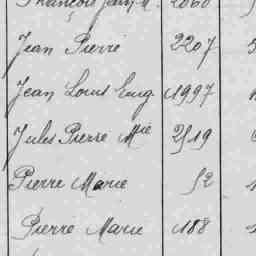 François 2060
Jean Pierre 2207
Jean Louis Eug 1997
Jules Pierre Mie 2519
Pierre Marie 52
Pierre Marie 188